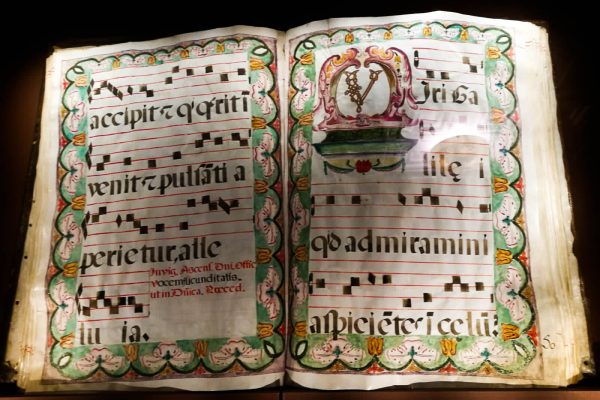 accipit ⁊ q̃ q̃rit ĩ
venit ⁊ pulsãti a
perietur, alle
Invig. Ascens. Dni. Offic.
vocem iucunditatis.
ut in Dñica. Præced.
lu ia.
Viri Ga
lilę i
qd admiramini
aspiciẽtes ĩ celũ?